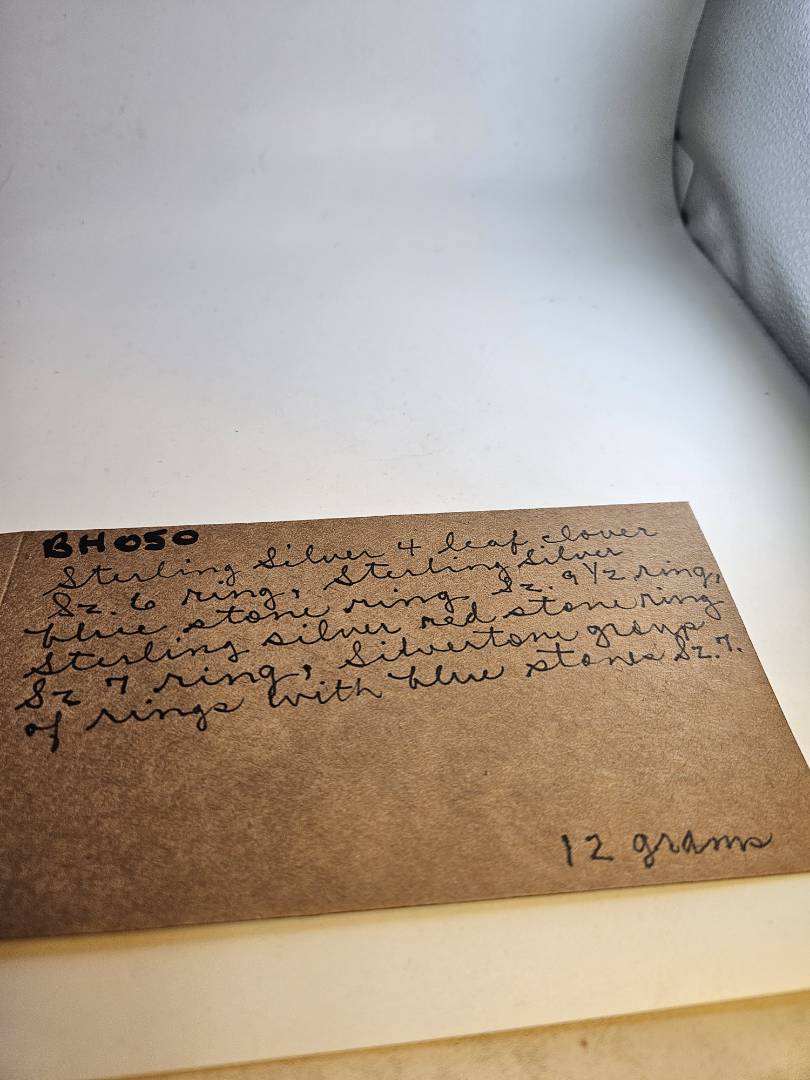 BH050
Sterling Silver 4 leaf clover
Sz. 6 ring, Sterling Silver
blue stone ring Sz. 9 1/2 ring,
Sterling silver red stone ring
Sz 7 ring, Silvertone group
of rings with blue stones Sz. 7.
12 grams